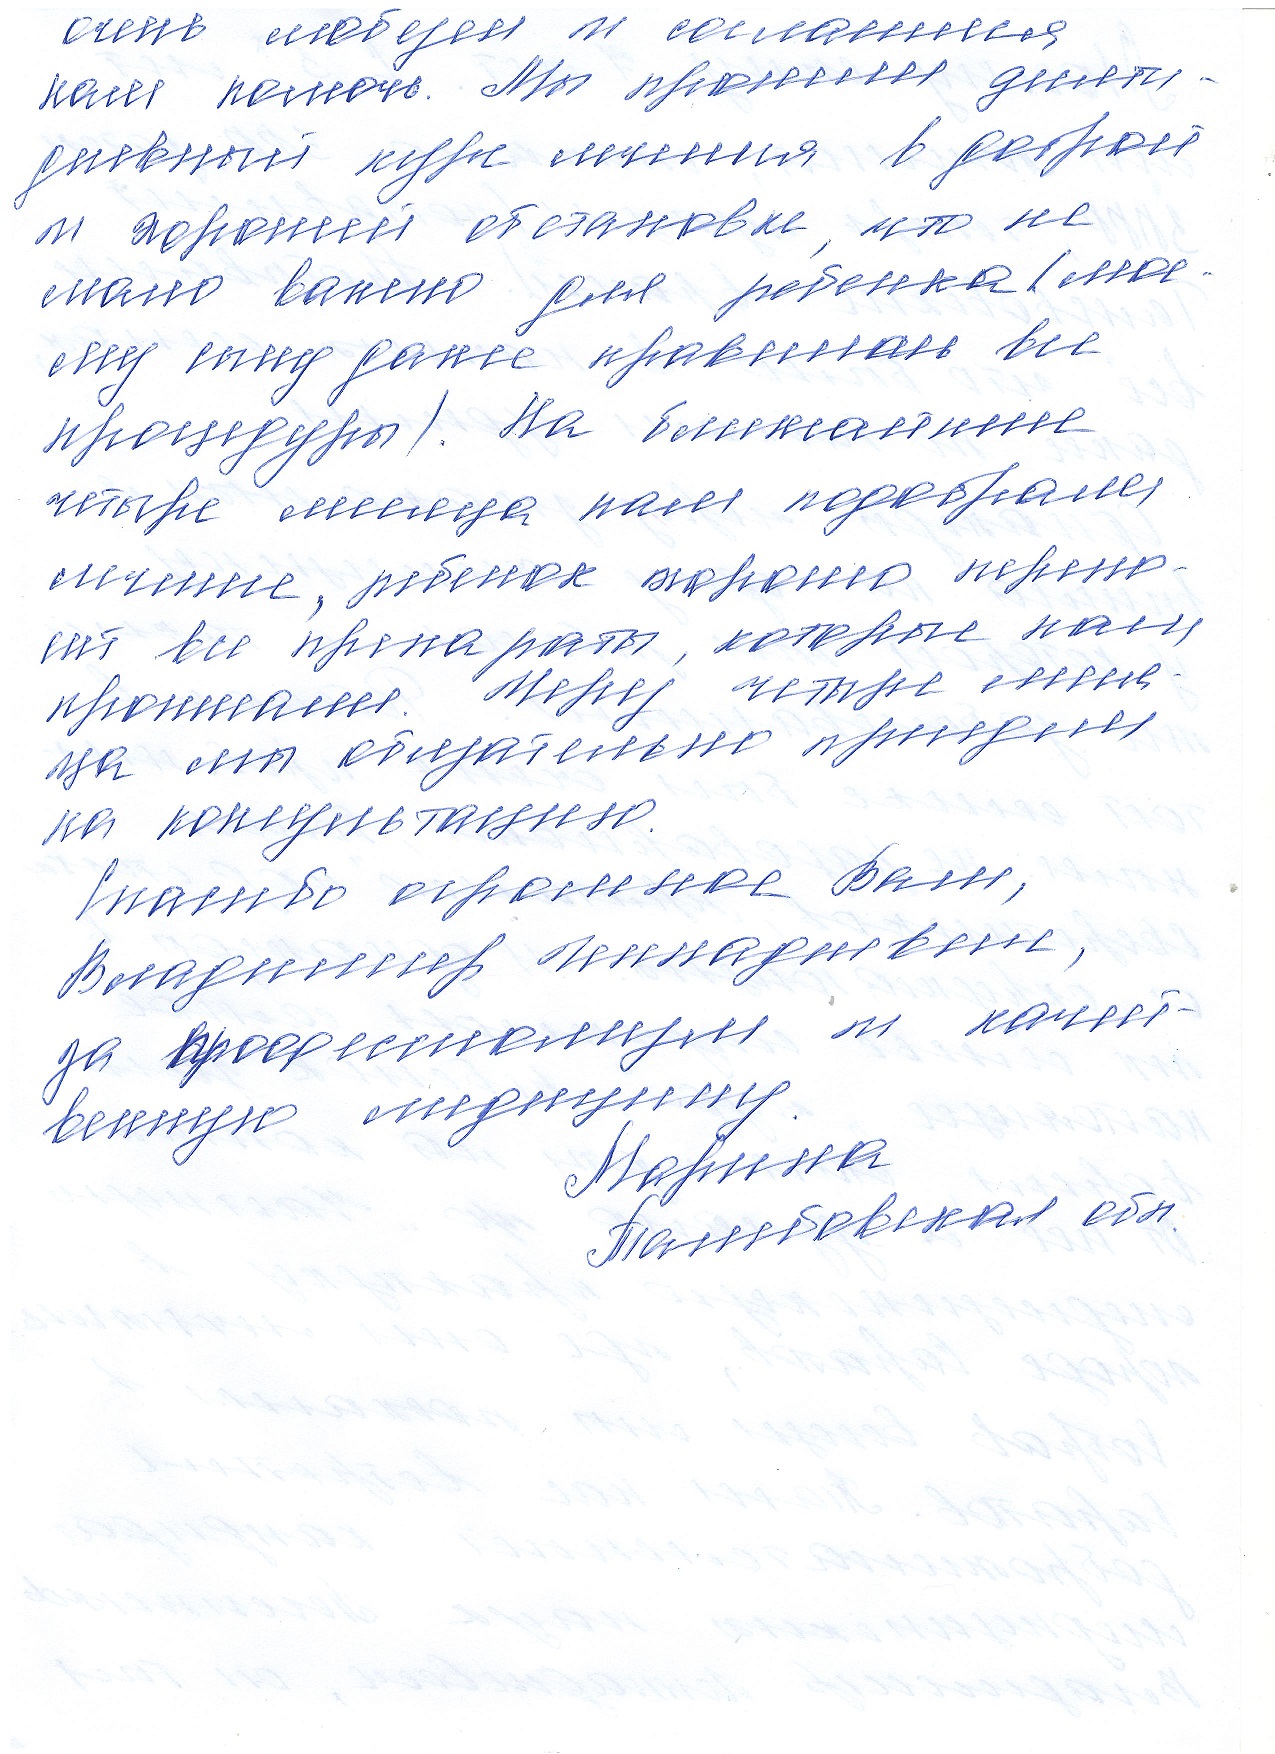 очень любезен и согласился
нам помочь. Мы прошли десяти-
дневный курс лечения в доброй
и хорошей обстановке, что не
мало важно для ребенка (мое-
му сыну даже нравились все
процедуры). На ближайшие
четыре месяца нам подобрали
лечение, ребенок хорошо перено-
сит все препараты, которые нам
прописали. Через четыре меся-
ца мы обязательно приедем
на консультацию.
Спасибо огромное Вам,
Владимир
за профессионализм и качест-
венную медицину.
Марина
Тамбовская обл.